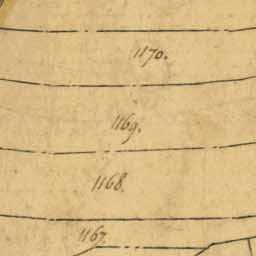 1170.
1169.
1168.
1167.